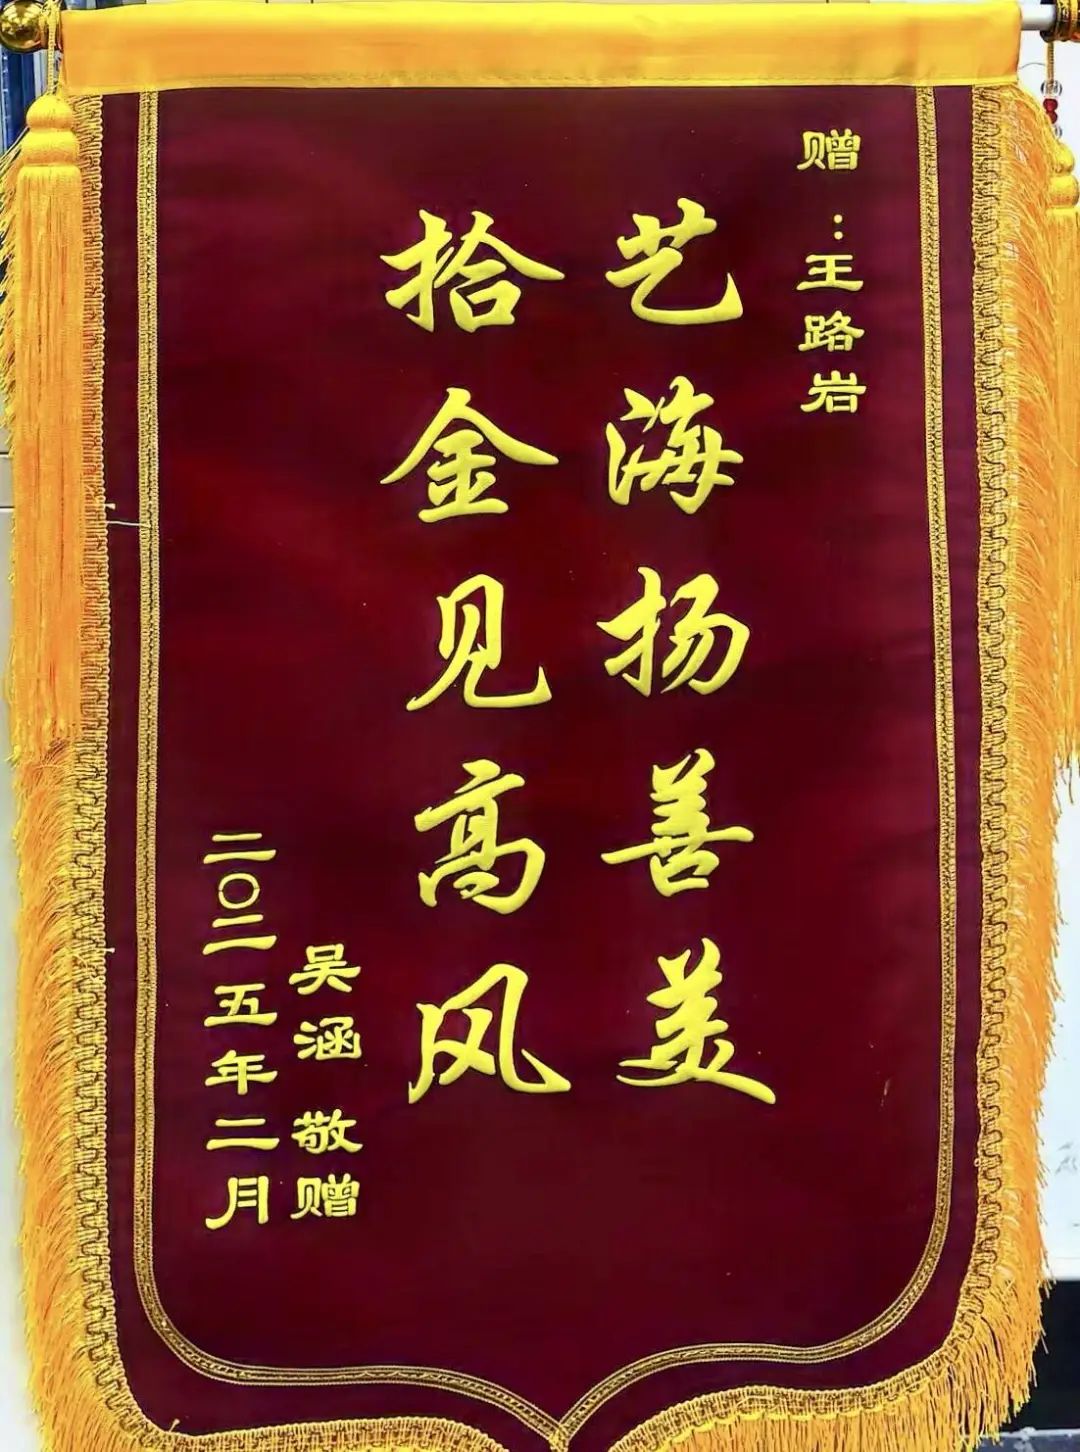 赠：王路岩
艺海扬善美
拾金见高风
吴涵 敬赠
二〇二五年二月